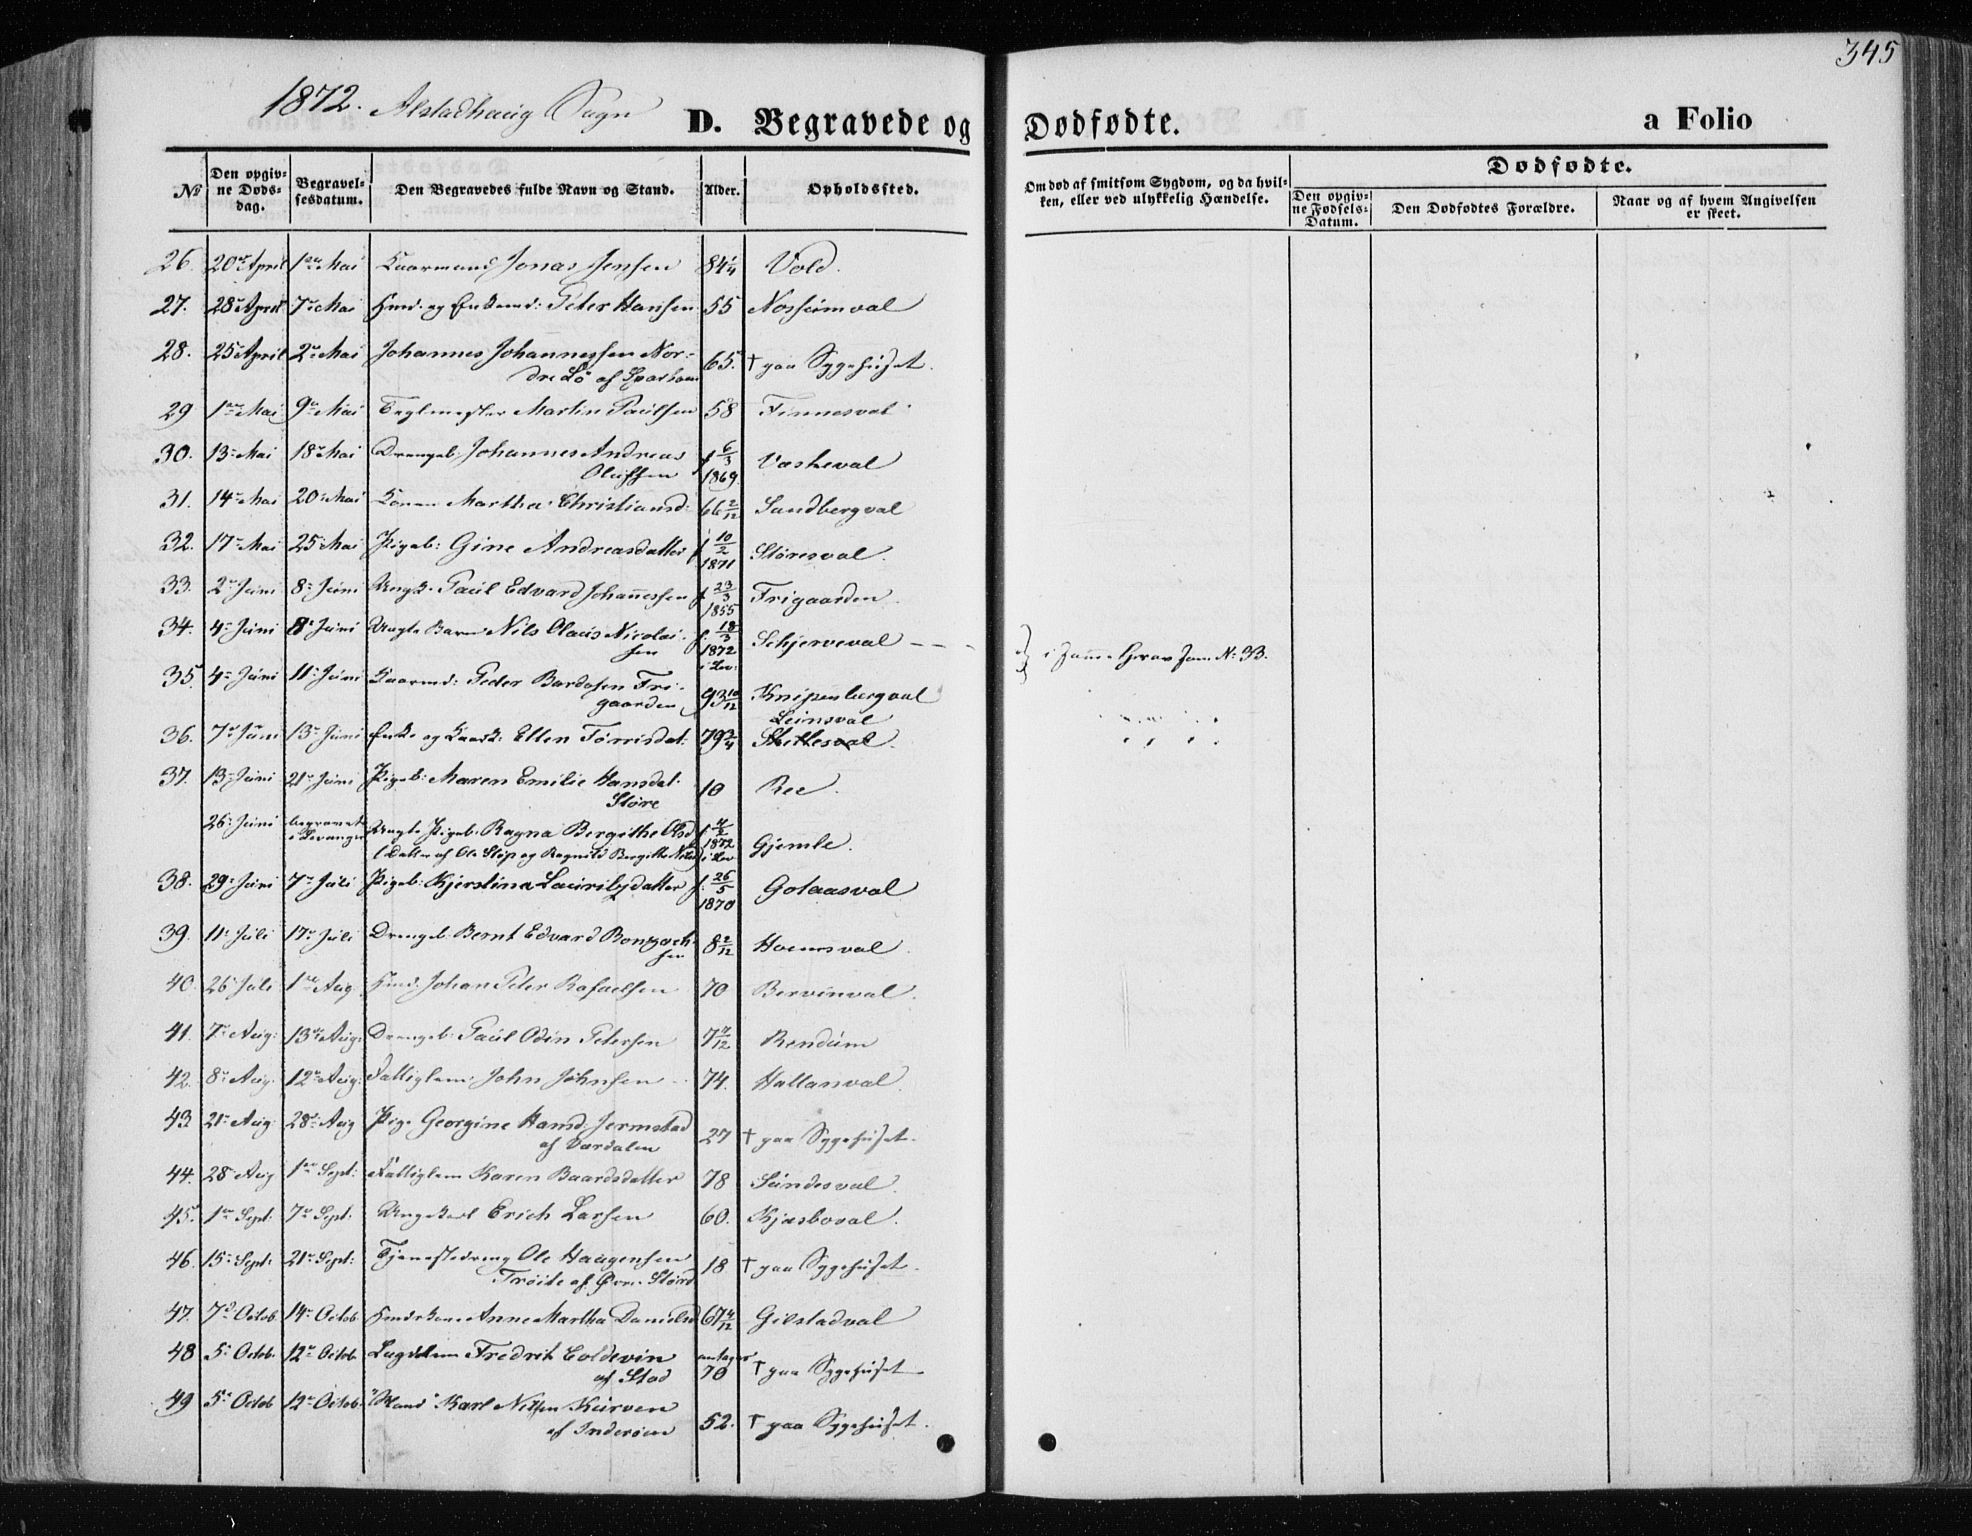 345
1872. Alstadhaug Sogn
D. Begravede og Dødfødte.
a Folio
No
Den opgivne Døds-dag.
Begravelsesdatum.
Den Begravedes fulde Navn og Stand.
Alder.
Opholdssted.
Om død af smitsom Sygdom, og da hvilken, eller ved ulykkelig Hændelse.
Dødfødte.
Den opgivne Fødsels-Datum.
Den Dødfødtes Forældre.
Naar og af hvem Angivelsen er skeet.
26. 20de April 1ste Mai Kaarmand Jonas Jensen 84 1/4 Vold.
27. 28de April 7de Mai Peter Hansen 55
28. 25 April 2de Mai Johannes Johannessen Nor-
dre Lø af Sparboen 65. † paa Sygehuset.
29 1ste Mai 9de Mai Teglmester Martin Paulsen 58 Finnesval
30. 13de Mai 18de Mai Drengeb. Johannes Andreas
Olufsen f 6/3 1869. Væskeval
31. 14de Mai 20de Mai Konen Martha Christiansd: 66 2/12 Sundbergval
32. 17de Mai 25 Mai Pigeb: Gine Andreasdatter f 10/2 1871 Støresval.
33. 2de Juni 8de Juni Ungk. Paul Edvard Johannessen f 23/3 1855 Frigaarden.
34. 4de Juni 8de Juni Uægte Barn Nils Olaus Nicolai-
sen f. 18/3 1872 i Lev: Schjerveval - - - i samme Grav som No 33.
35. 4de Juni 11te Juni Kaarmd: Peder Bardosen Fri-
gaarden 93 10/12 Knipenbergval
Leinsval
36. 7de Juni 13de Juni Enke og Kaark: Ellen Tørrisdat: 79 3/4
37. 13de Juni 21de Juni Pigeb: Maren Emilie Hansdat.
Støre 10 Ree.
26de Juni begravet i Levanger Uægte Pigeb: Ragna Bergithe Olsd f 4/2 1872 i Lev Gjemle.
(Datter af Ole Slip og Ragnild Bergitte Nilsd)
38. 29de Juni 7de Juli Pigeb: Kjerstina Lauritzdatter f. 26/5 1870 Golaasval
39. 11te Juli 17de Juli Drengeb: Bernt Edvard
sen 8 2/12 Hoemsval.
40. 26 Juli 1ste Aug. Johan Peter Rafaelsen 70 Bervinval.
41. 7de Aug: 13de Aug: Drengeb: Paul Odin Petersen 7 7/12 Rendum
42. 8de Aug. 12te Aug: Fattiglem: John Johnsen 74. Hallanval.
43 21de Aug 28de Aug Pige Georgine Hansd. Jermstad
af Værdalen 27 † paa Sygehuset.
44. 28 Aug 1ste Sept: Fattiglem Karen Baardsdatter 78 Sundesval.
45. 1ste Sept. 7de Sept. Ungkarl Erich Larsen 60. Kjæsboval.
46. 15de Sept: 21de Sept: Tjenestedreng Ole Haagensen
Trøite af Øvre Størd 18 † paa Sygehuset.
47. 7de Octob 14de Octob Anne Martha Danielsd 67 4/12 Gilstadval
48 5te Octob. 12te Octob. Lægdslem Fredrik Coldevin
af Stod antager 70 † paa Sygehuset
49 5te Octob 12te Octob. "Mand" Karl Nilssen Kurven
af Inderøen 52. † paa Sygehuset.